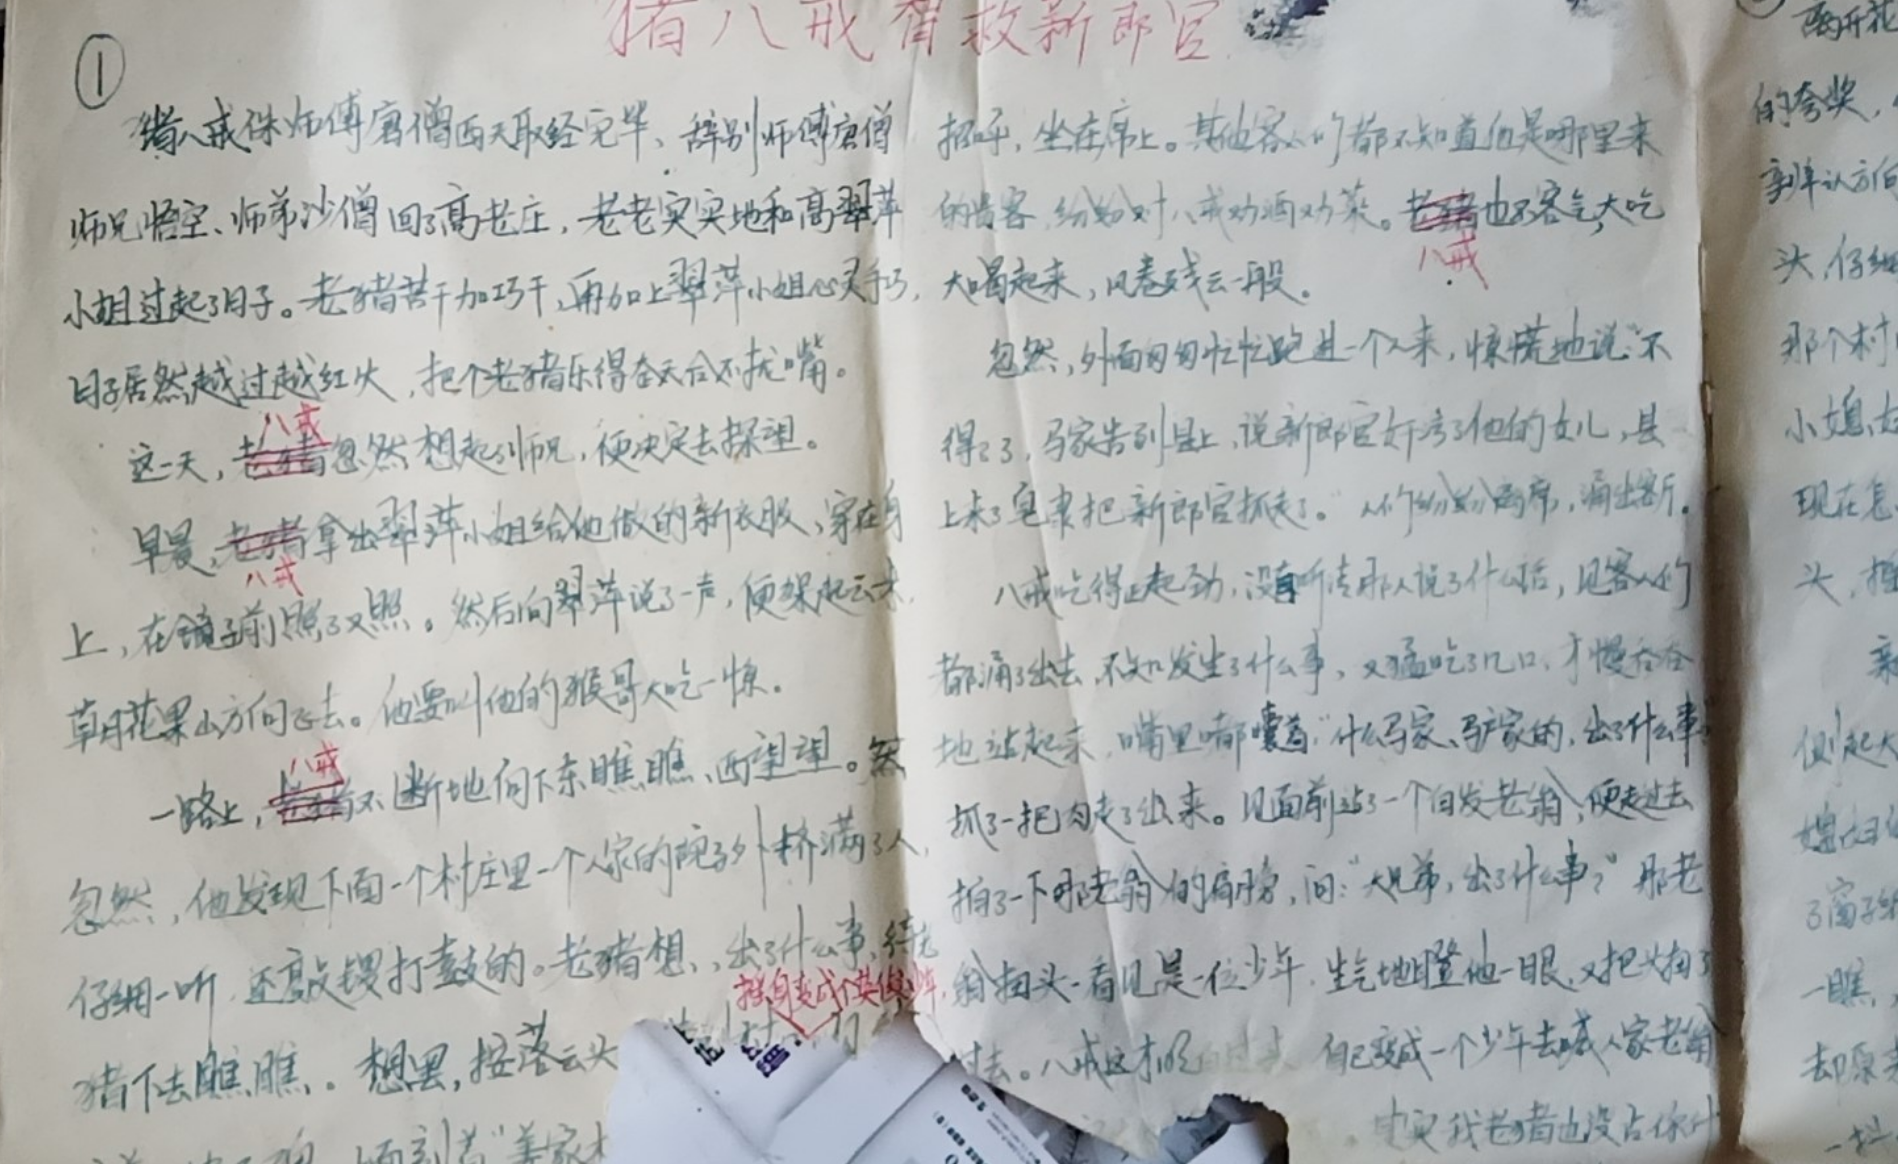 猪八戒智救新郎官
①
猪八戒保师傅唐僧西天取经完毕、辞别师傅唐僧
师兄悟空、师弟沙僧回了高老庄，老老实实地和高翠萍
小姐过起了日子。老猪苦干加巧干，再加上翠萍小姐心灵手巧，
日子居然越过越红火，把个老猪乐得整天合不拢嘴。
八戒
这一天，老猪忽然想起了师兄，便决定去探望。
早晨，老猪拿出翠萍小姐给他做的新衣服，穿在身
八戒
上，在镜子前照了又照。然后向翠萍说了一声，便架起云来，
草月花果山方向飞去。他要叫他的猴哥大吃一惊。
八戒
一路上，老猪不断地向下东瞧瞧、西望望。然
忽然，他发现下面一个村庄里一个人家的院子外挤满了人，
仔细一听，还敲锣打鼓的。老猪想，出了什么事，待老
摇身变成个英俊少年，
猪下去瞧瞧。想罢，按落云头
招呼，坐在席上。其他客人们都不知道他是哪里来
的贵客，纷纷对八戒劝酒劝菜。老猪也不客气，大吃
八戒
大喝起来，风卷残云一般。
忽然，外面匆匆忙忙跑进一个人来，惊慌地说“不
得了了，马家告到县上，说新郎官奸污了他的女儿，县
上来了皂隶把新郎官抓走了。”人们纷纷离席，涌出
八戒吃得正起劲，没有听清那人说了什么话，见客人们
都涌了出去，不知发生了什么事，又猛吃了几口，才慢吞吞
地站起来，嘴里嘟囔着：“什么马家、驴家的，出了什么事”
抓了一把肉走了出来。见面前站了一个白发老翁，便走过去
拍了一下那老翁的肩膀，问：“大兄弟，出了什么事？”那老
翁扭头一看见是一位少年，生气地瞪他一眼，又把头扭了
过去。八戒这才明白过来，自己变成一个少年去喊人家老翁
其实我老猪也没占你什
离开花
的夸奖，
辨认方向
头，仔细
那个村
小媳
现在怎
头，
一瞧，